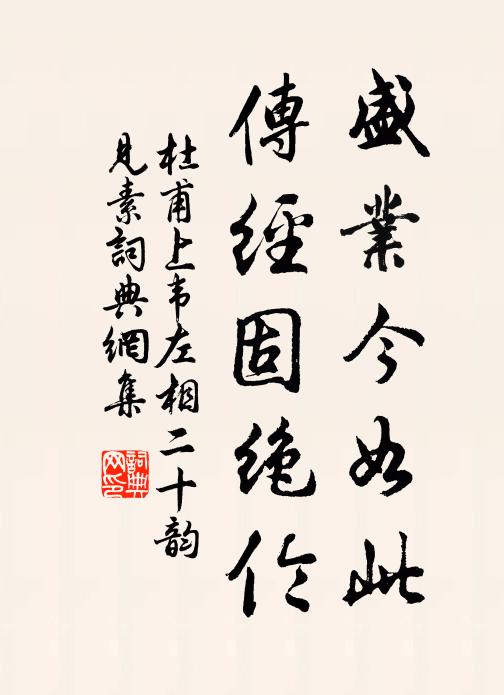 盛業今如此
傳經固絶倫
杜甫上韦左相二十韵
見素詞典網集
詞典網印